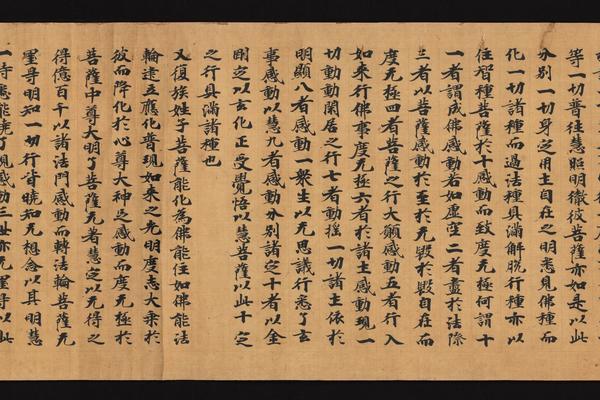 等一普往慧照明徹彼菩薩亦如是以此
分別一切身之用土自在之明悉見佛種而
化一切諸種而過法種具滿解脫行種亦以
住智種菩薩於十感動而致度无極何謂十
一者謂成佛感動若如虛空二者盡於法際
三者以菩薩感動於至於无毀於毀自在而
度无極四者菩薩之行大願感動五者行入
如来行佛事度无極六者於諸土感動現一
切動動閑居之行七者動搖一切諸土依於
明顯八者感動一衆生以无思議行悉了玄
事感動以慧九者感動分別諸之十者以金
剛定以玄化正受覺悟以慧菩薩以此十定
之行具滿諸種也
又復族姓子菩薩能化為佛能住如佛能法
輪逮立應化普現如来之光明度大乘於
彼而降化於心尊大神足感動而度无極於
菩薩中尊大明了菩薩无著慧定以无得之
得億百千以諸法門感動而轉法輪菩薩无
罣导明知一切行皆曉知无想念以其明慧